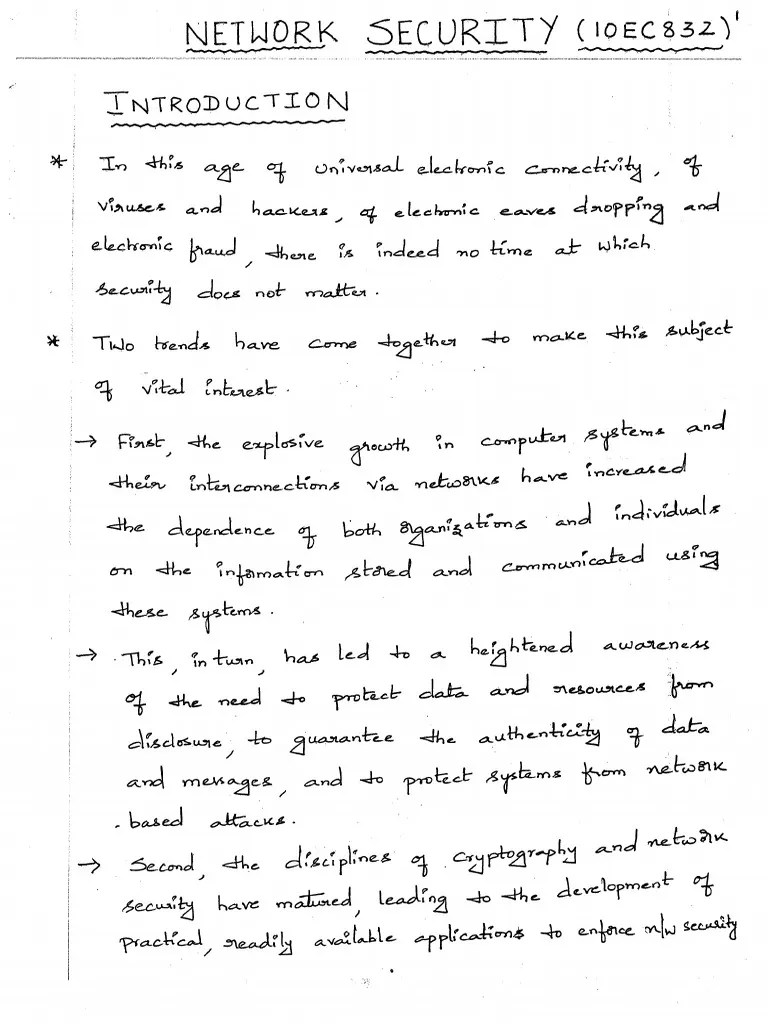 NETWORK SECURITY (10EC832) 1
INTRODUCTION
* In this age of universal electronic connectivity, of
viruses and hackers, of electronic eaves dropping and
electronic fraud, there is indeed no time at which
security does not matter.
* Two trends have come together to make this subject
of vital interest.
→ First, the explosive growth in computer systems and
their interconnections via networks have increased
the dependence of both organizations and individuals
on the information stored and communicated using
these systems.
→ This, in turn, has led to a heightened awareness
of the need to protect data and resources from
disclosure, to guarantee the authenticity of data
and messages, and to protect systems from network
-based attacks.
→ Second, the disciplines of cryptography and network
security have matured, leading to the development of
practical, readily available applications to enforce n/w security